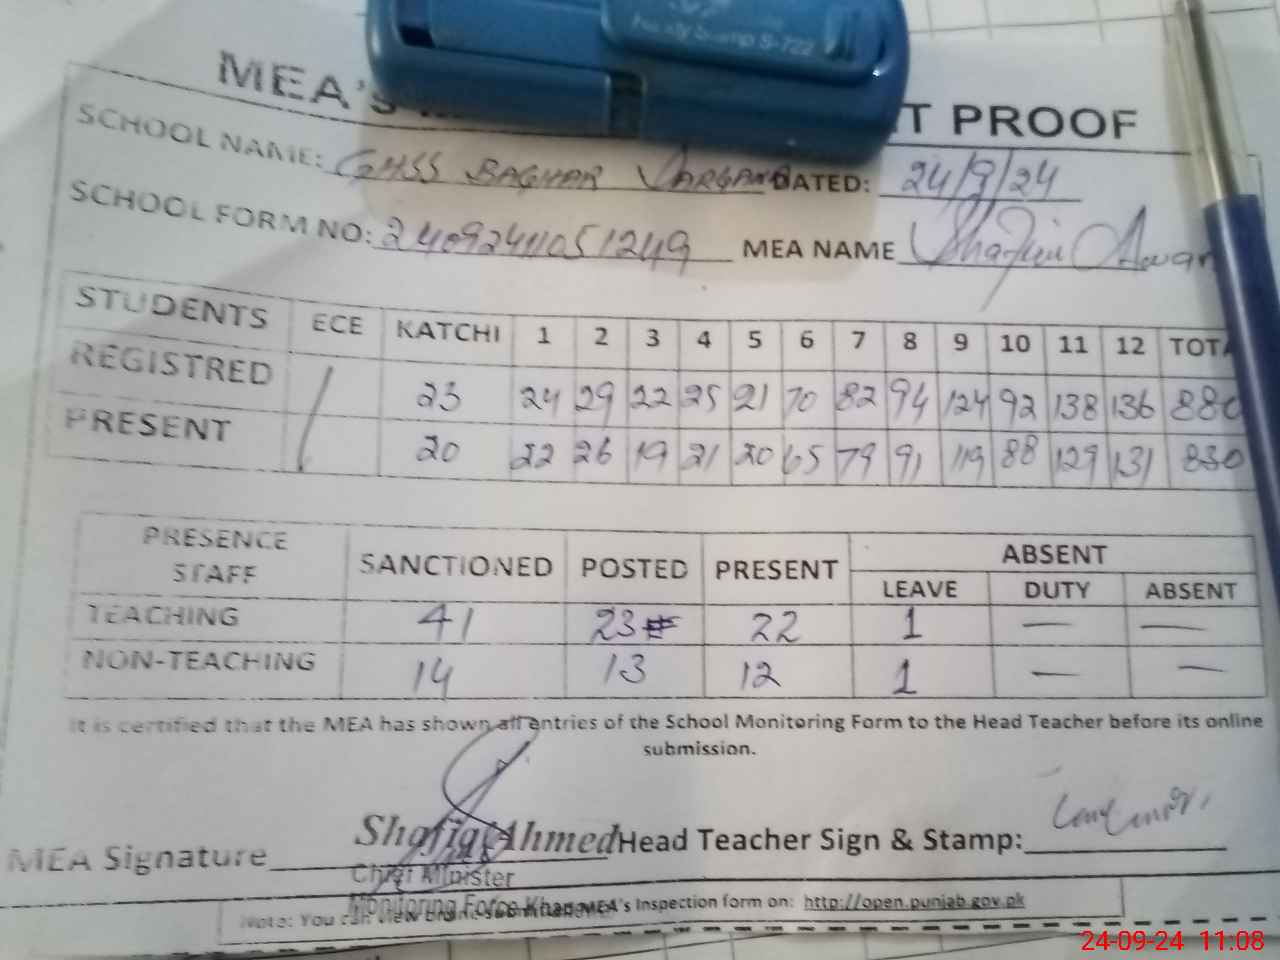 Handy Stamp S-722
MEA'S T PROOF
SCHOOL NAME: GHSS BAGHAR DATED: 24/9/24
SCHOOL FORM NO: 24092411051249 MEA NAME Shafiq Awan
STUDENTS ECE KATCHI 1 2 3 4 5 6 7 8 9 10 11 12 TOTA
REGISTRED / 23 24 29 22 25 21 70 82 94 124 92 138 136 880
PRESENT 20 22 26 19 21 20 65 79 91 119 88 129 131 830
PRESENCE STAFF SANCTIONED POSTED PRESENT ABSENT
LEAVE DUTY ABSENT
TEACHING 41 23 22 1 — —
NON-TEACHING 14 13 12 1 — —
It is certified that the MEA has shown all entries of the School Monitoring Form to the Head Teacher before its online
submission.
MEA Signature Shafiq Ahmed Head Teacher Sign & Stamp:
Chief Minister
Monitoring Force
Note: You can view MEA's Inspection form on: http://open.punjab.gov.pk
24-09-24 11:08